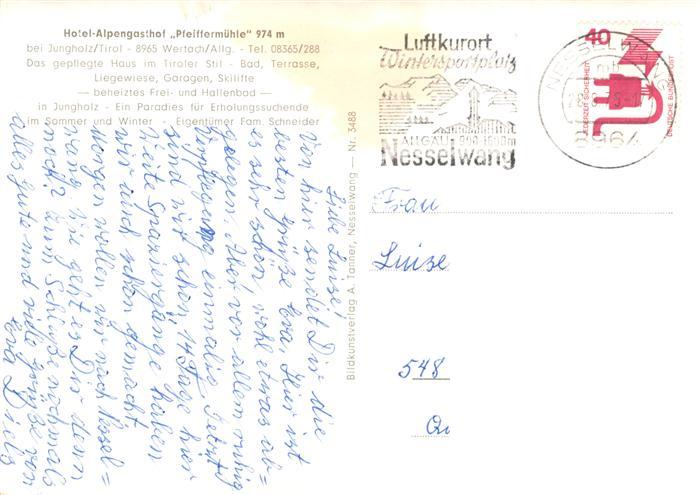 Hotel-Alpengasthof „Pfeiffermühle" 974 m
bei Jungholz/Tirol - 8965 Wertach/Allg. - Tel. 08365/288
Das gepflegte Haus im Tiroler Stil - Bad, Terrasse,
Liegewiese, Garagen, Skilifte
— beheiztes Frei- und Hallenbad —
in Jungholz - Ein Paradies für Erholungssuchende
im Sommer und Winter - Eigentümer Fam. Schneider
Liebe Luise!
Von hier sendet Dir die
besten Grüße Eva. Hier ist
es sehr schön, wohl etwas ab=
gelegen. Aber vor allem ruhig
Verpflegung einmalig. Jetzt
sind wir schon 14 Tage hier
Weite Spaziergänge haben
wir auch schon gemacht
Morgen wollen wir nach Nessel=
wang. Wie geht es Dir denn
noch? Zum Schluße nochmals
alles gute und viele Grüße von
Eva Diels
Bildkunstverlag A. Tanner, Nesselwang — Nr. 3488
Luftkurort
Wintersportplatz
ALLGÄU 900-1600m
Nesselwang
NESSELWANG
8964
40
JEDERZEIT SICHERHEIT
DEUTSCHE BUNDESPOST
Frau
Luise
548